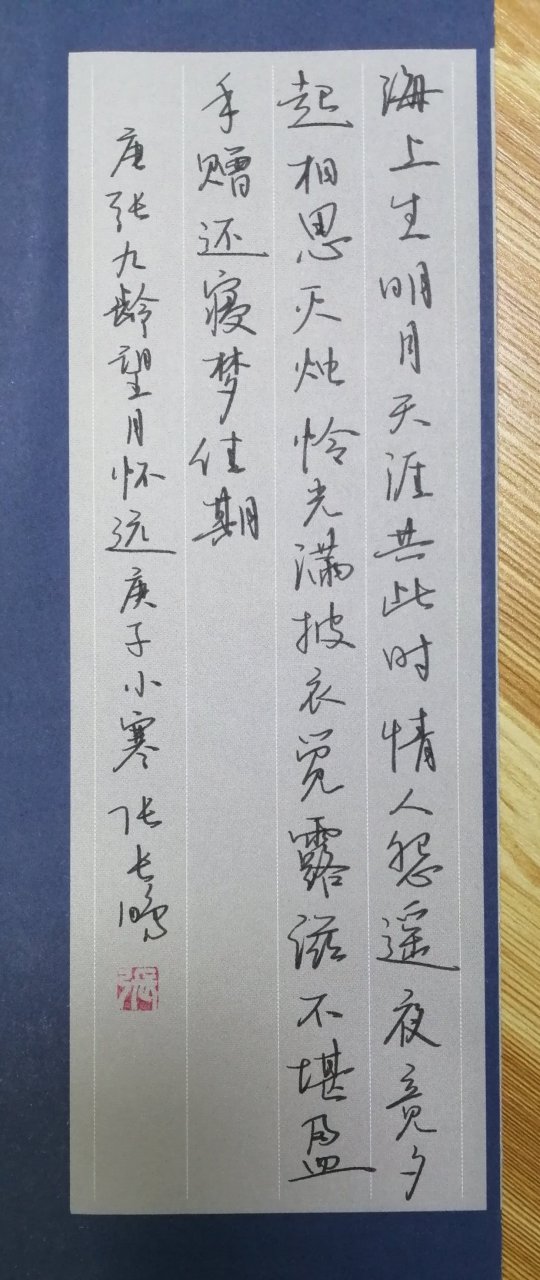 海上生明月天涯共此时情人怨遥夜竟夕
起相思灭烛怜光满披衣觉露滋不堪盈
手赠还寝梦佳期
唐张九龄望月怀远庚子小寒张长鸣
张